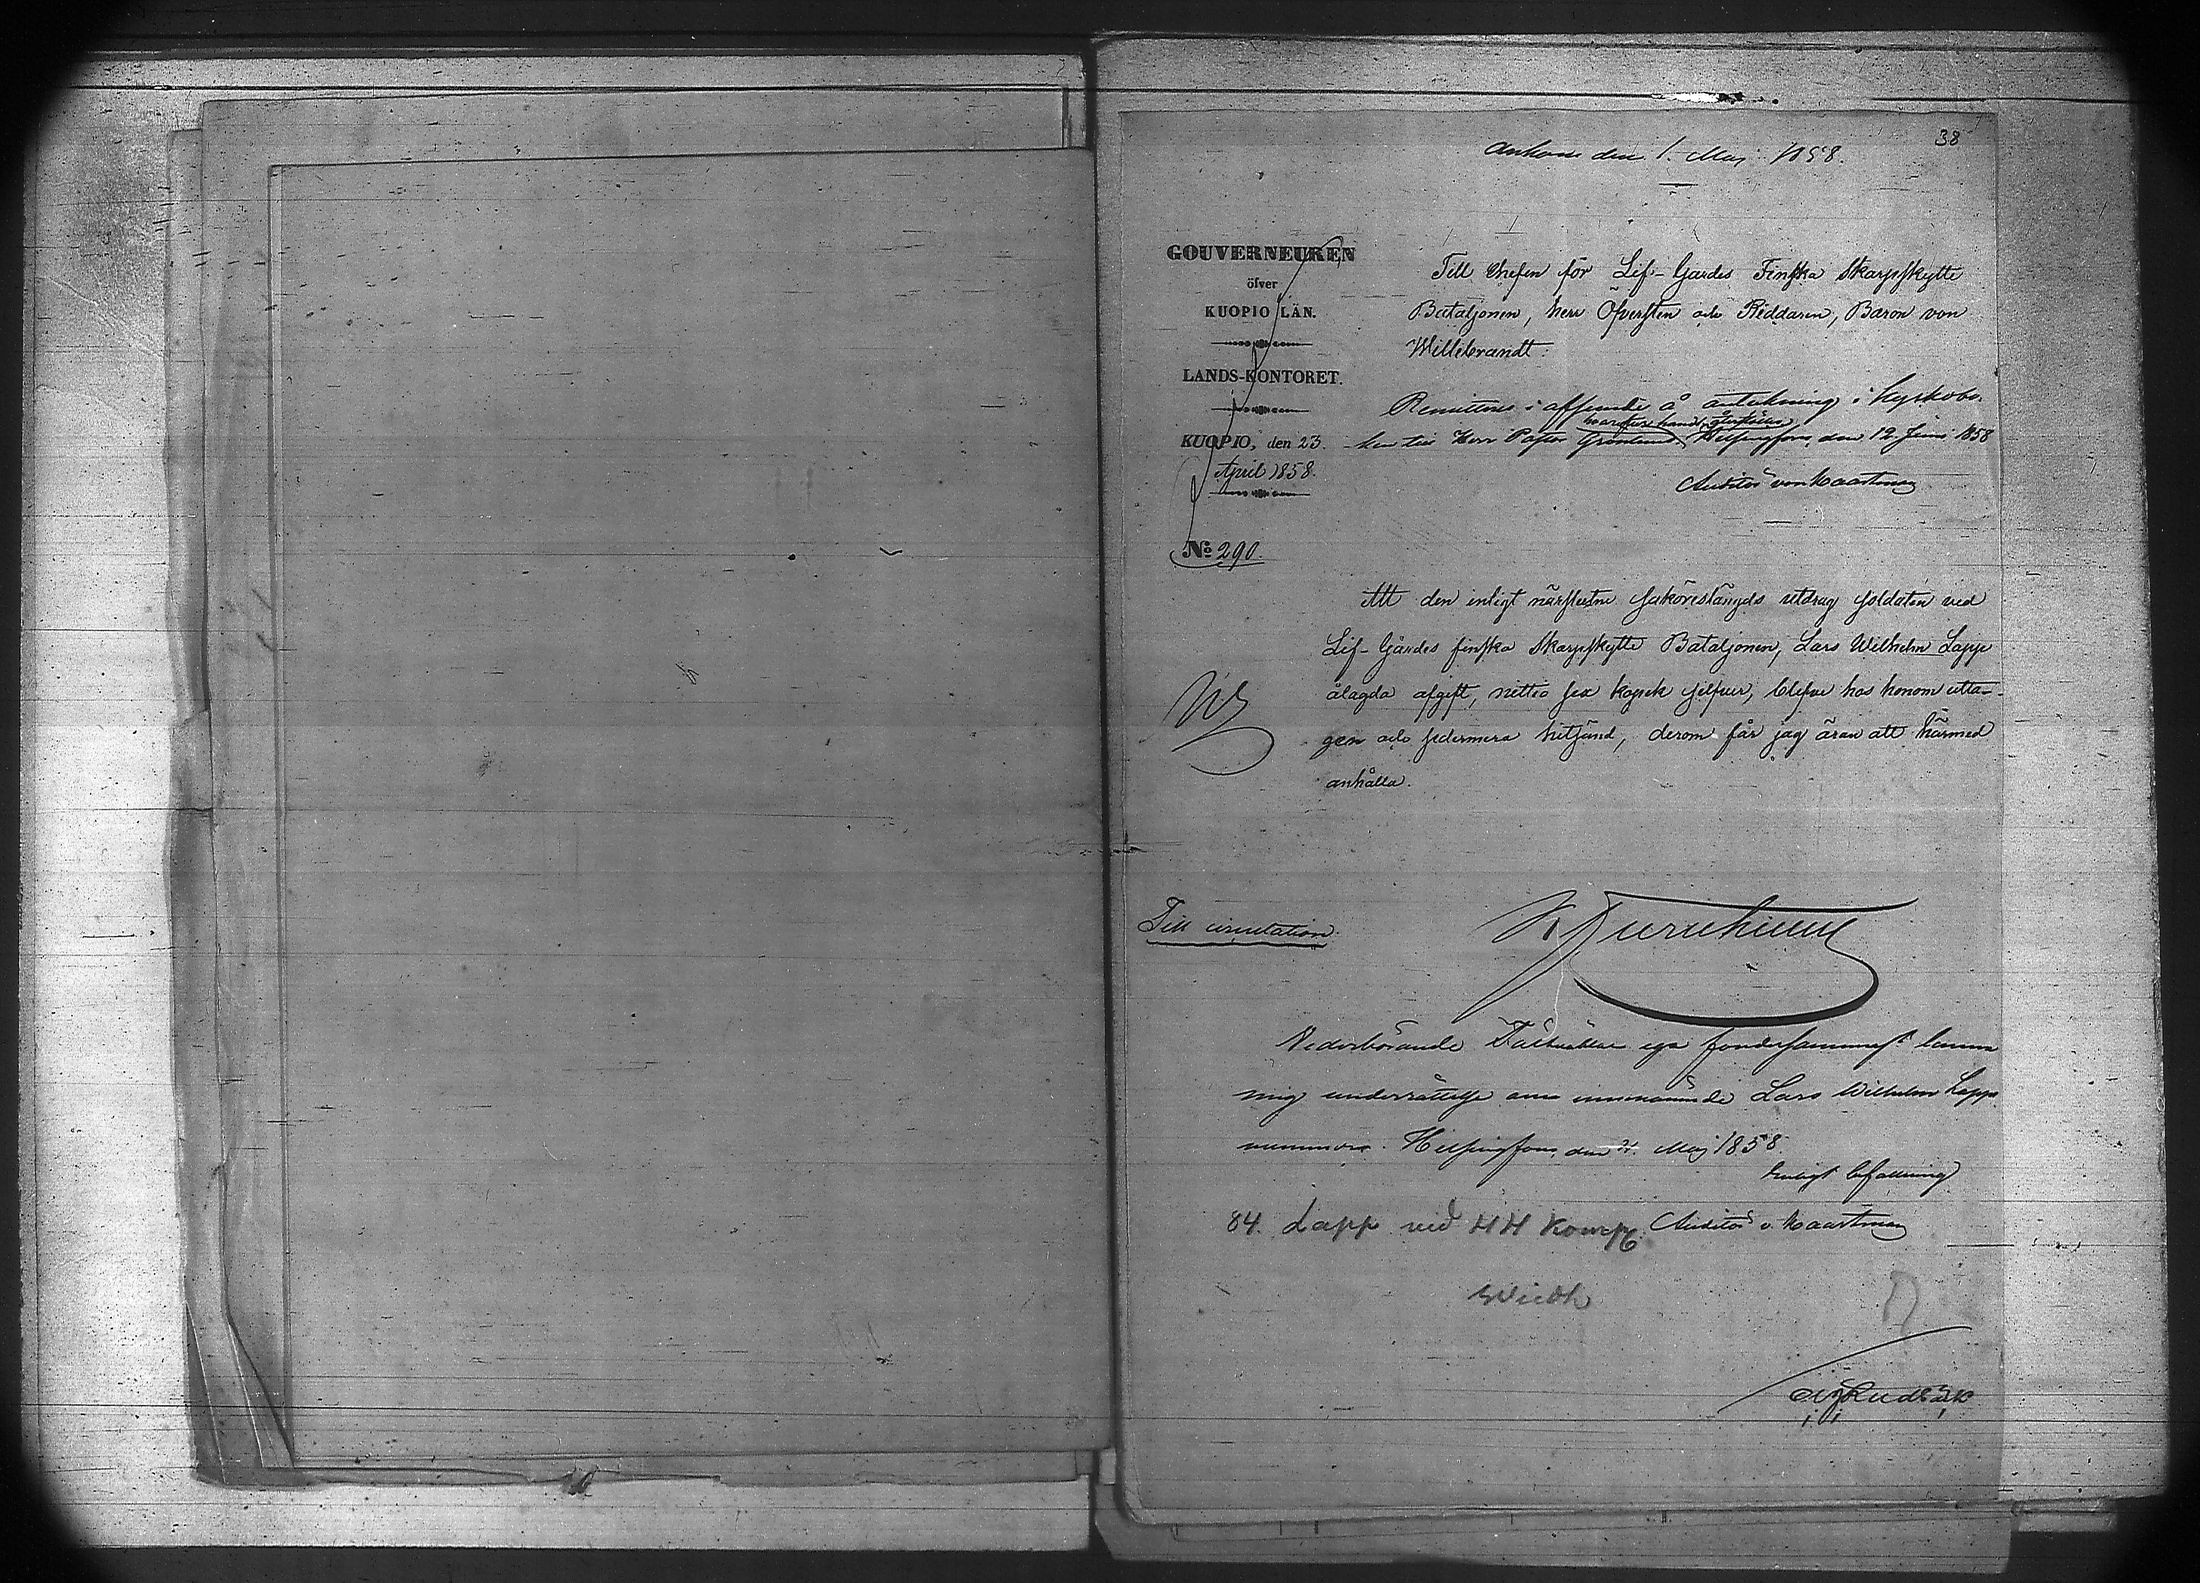 38
Ankom den 1. Maj 1858.
GOUVERNEUREN
öfver
KUOPIO LÄN.
LANDS-KONTORET.
KUOPIO, den 23.
April 1858.
No 290.
Till Chefen för Lif-Gardes Finska Skarpskytte
Bataljonen, herr Öfversten och Riddaren, Baron von
Willebrandt.
Remitteras i afseende å anteckning i kyrkobo-
ken till Herr Pastor Grönlund, Helsingfors, den 12 Juni 1858
Auditör von Haartman
Att den enligt närslutne sakörestängds utdrag soldaten vid
Lif-Gardes finska Skarpskytte Bataljonen, Lars Wilhelm Lapp
ålagda afgift, nittio sex kopek silfver, blefve hos honom utta-
gen och sedermera hitsänd, derom får jag äran att härmed
anhålla.
Till
Vederbörande Fältväblar ega fordersammast lemna
mig underrättelse om innevarande Lars Wilhelm Lapps
nummer. Helsingfors, den 2. Maj 1858.
Enligt befallning
Auditör v. Haartman
84. Lapp vid 4 Komp